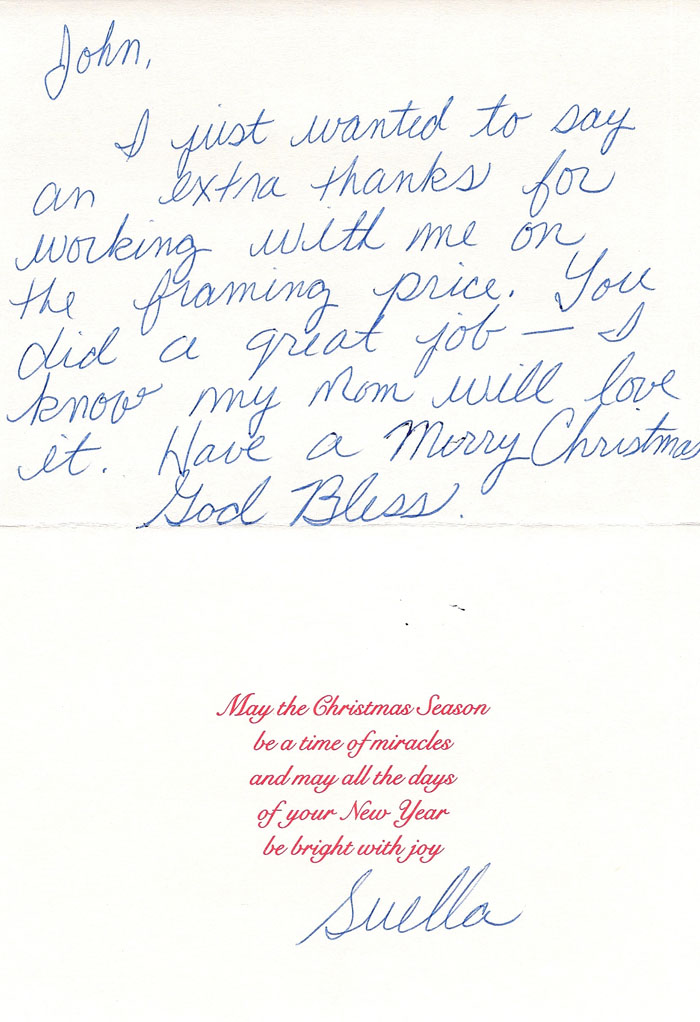 John,
I just wanted to say
an extra thanks for
working with me on
the framing price. You
did a great job — I
know my Mom will love
it. Have a Merry Christmas
God Bless.
May the Christmas Season
be a time of miracles
and may all the days
of your New Year
be bright with joy
Suella